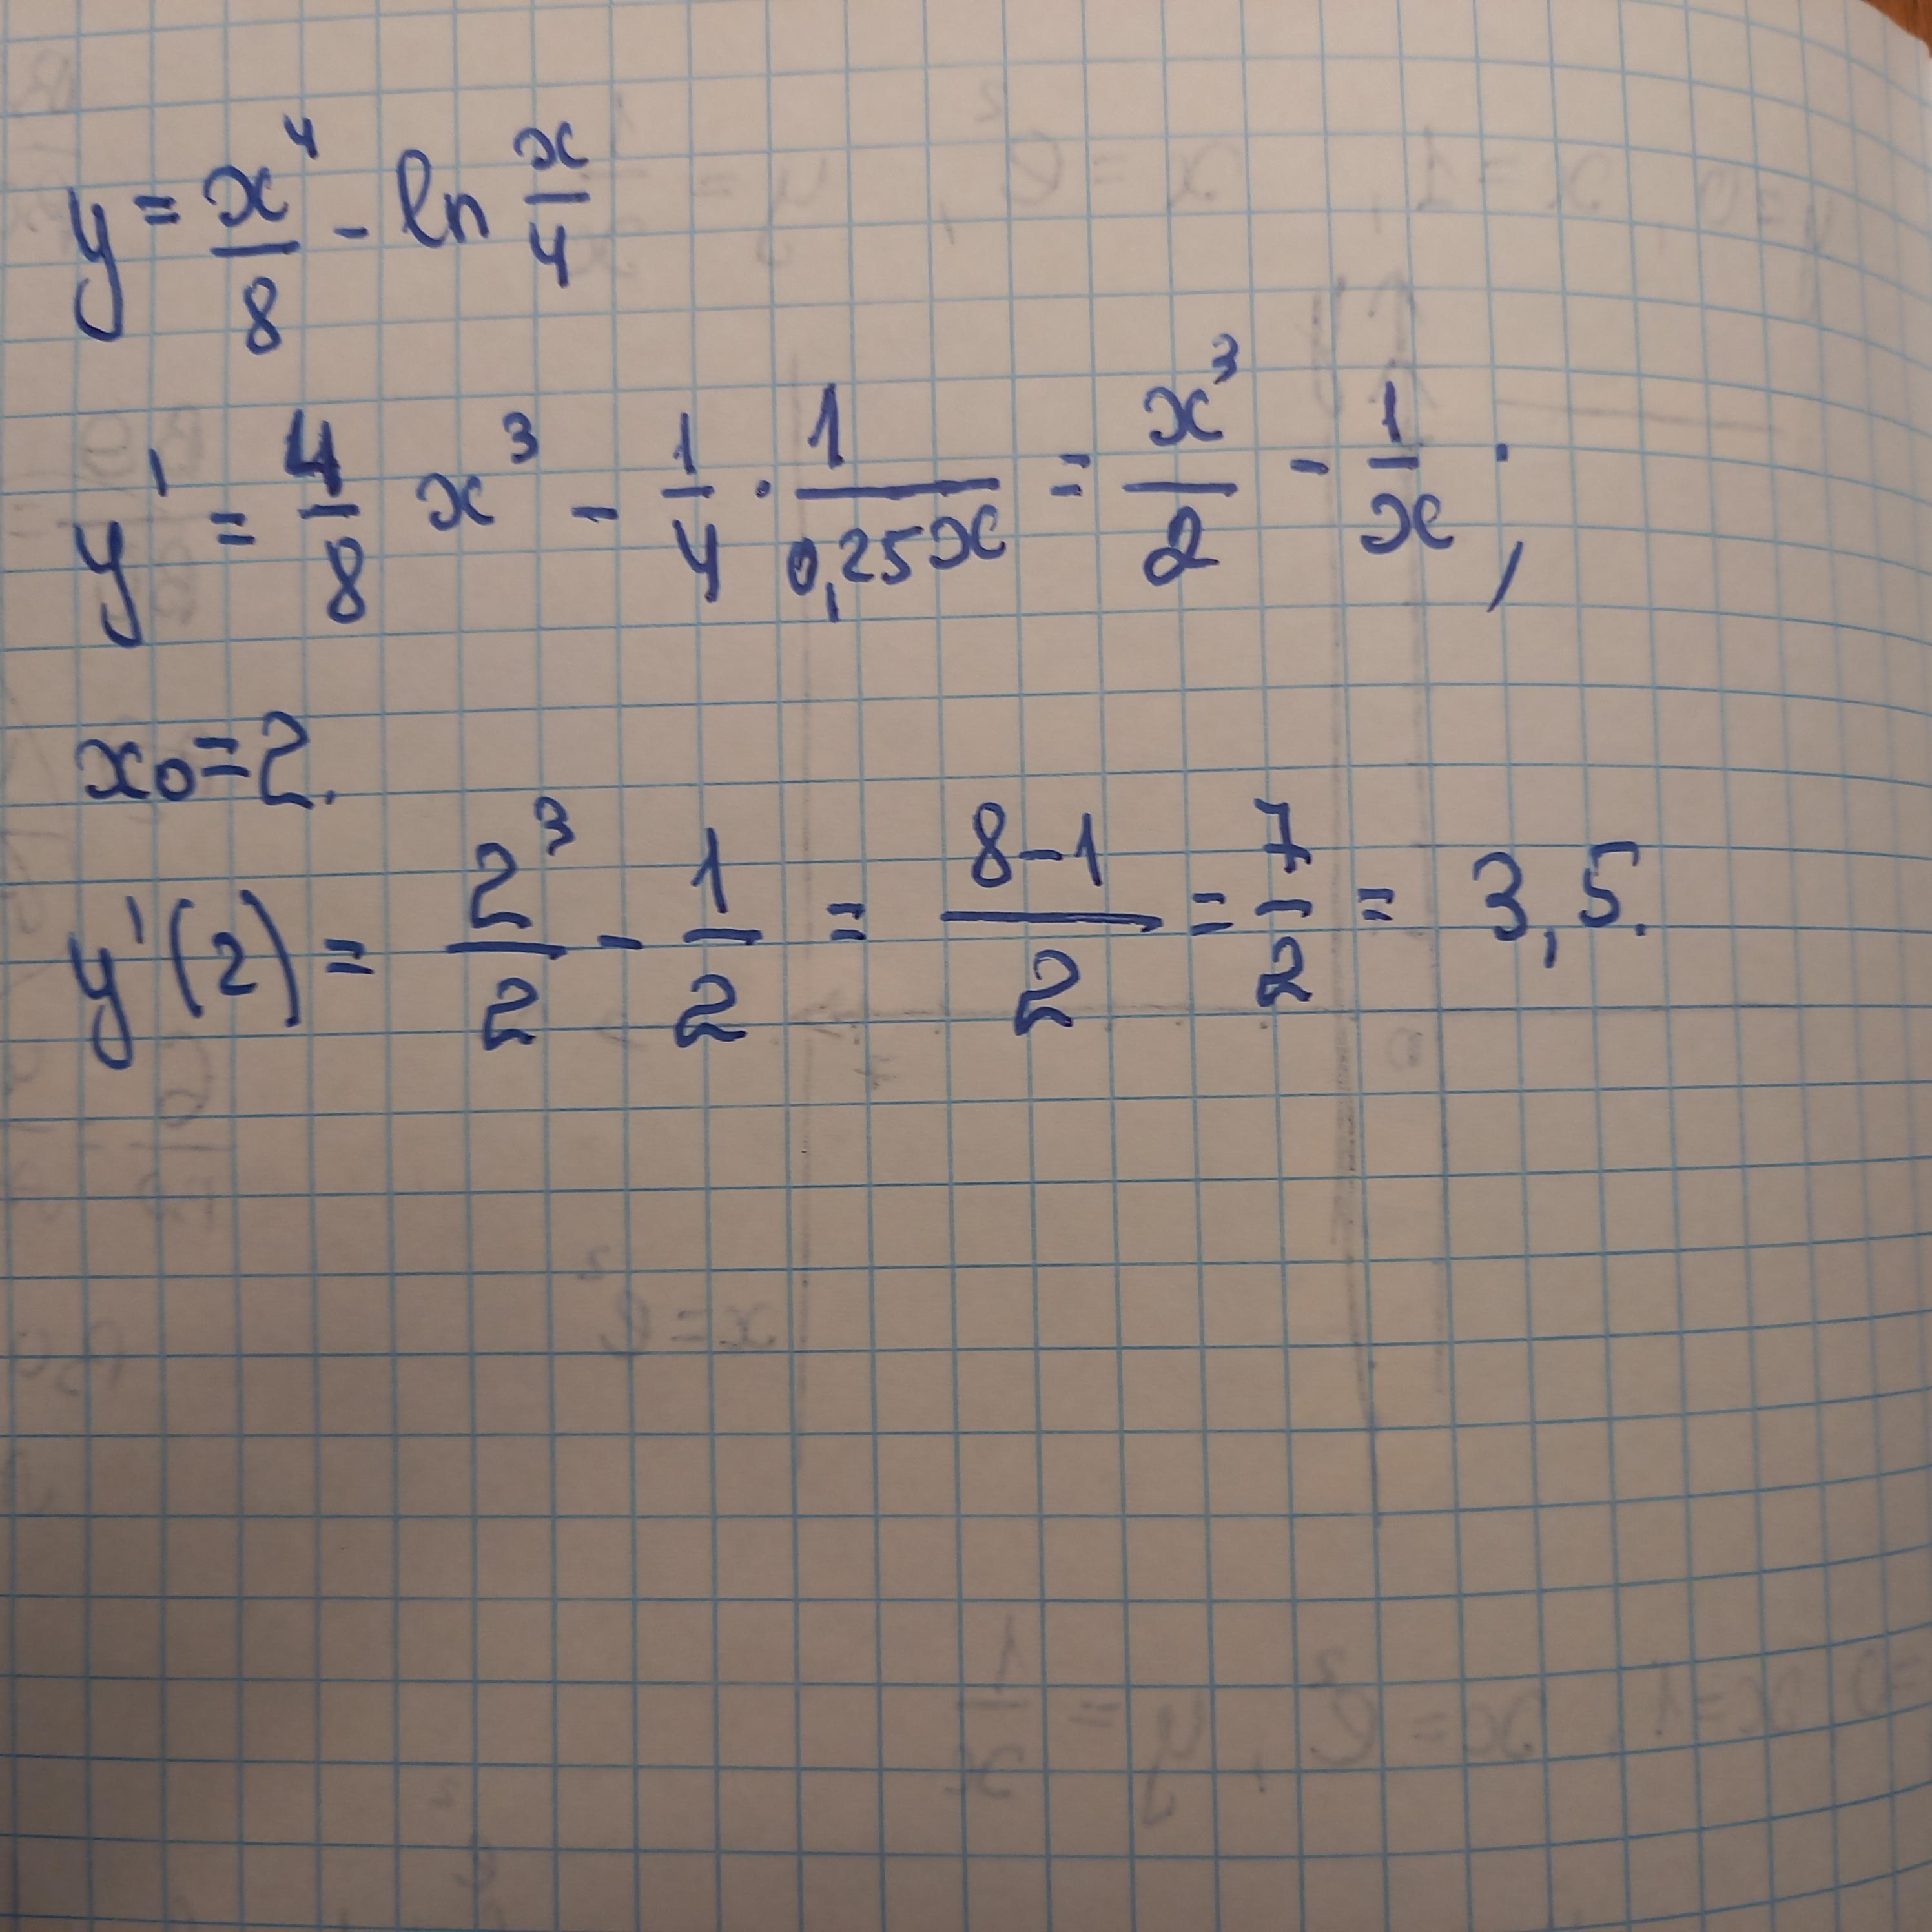 y = x⁴/8 - ln x/4
y' = 4/8 x³ - 1/4 · 1/0,25x = x³/2 - 1/x ;
x₀=2.
y'(2) = 2³/2 - 1/2 = 8-1/2 = 7/2 = 3,5.